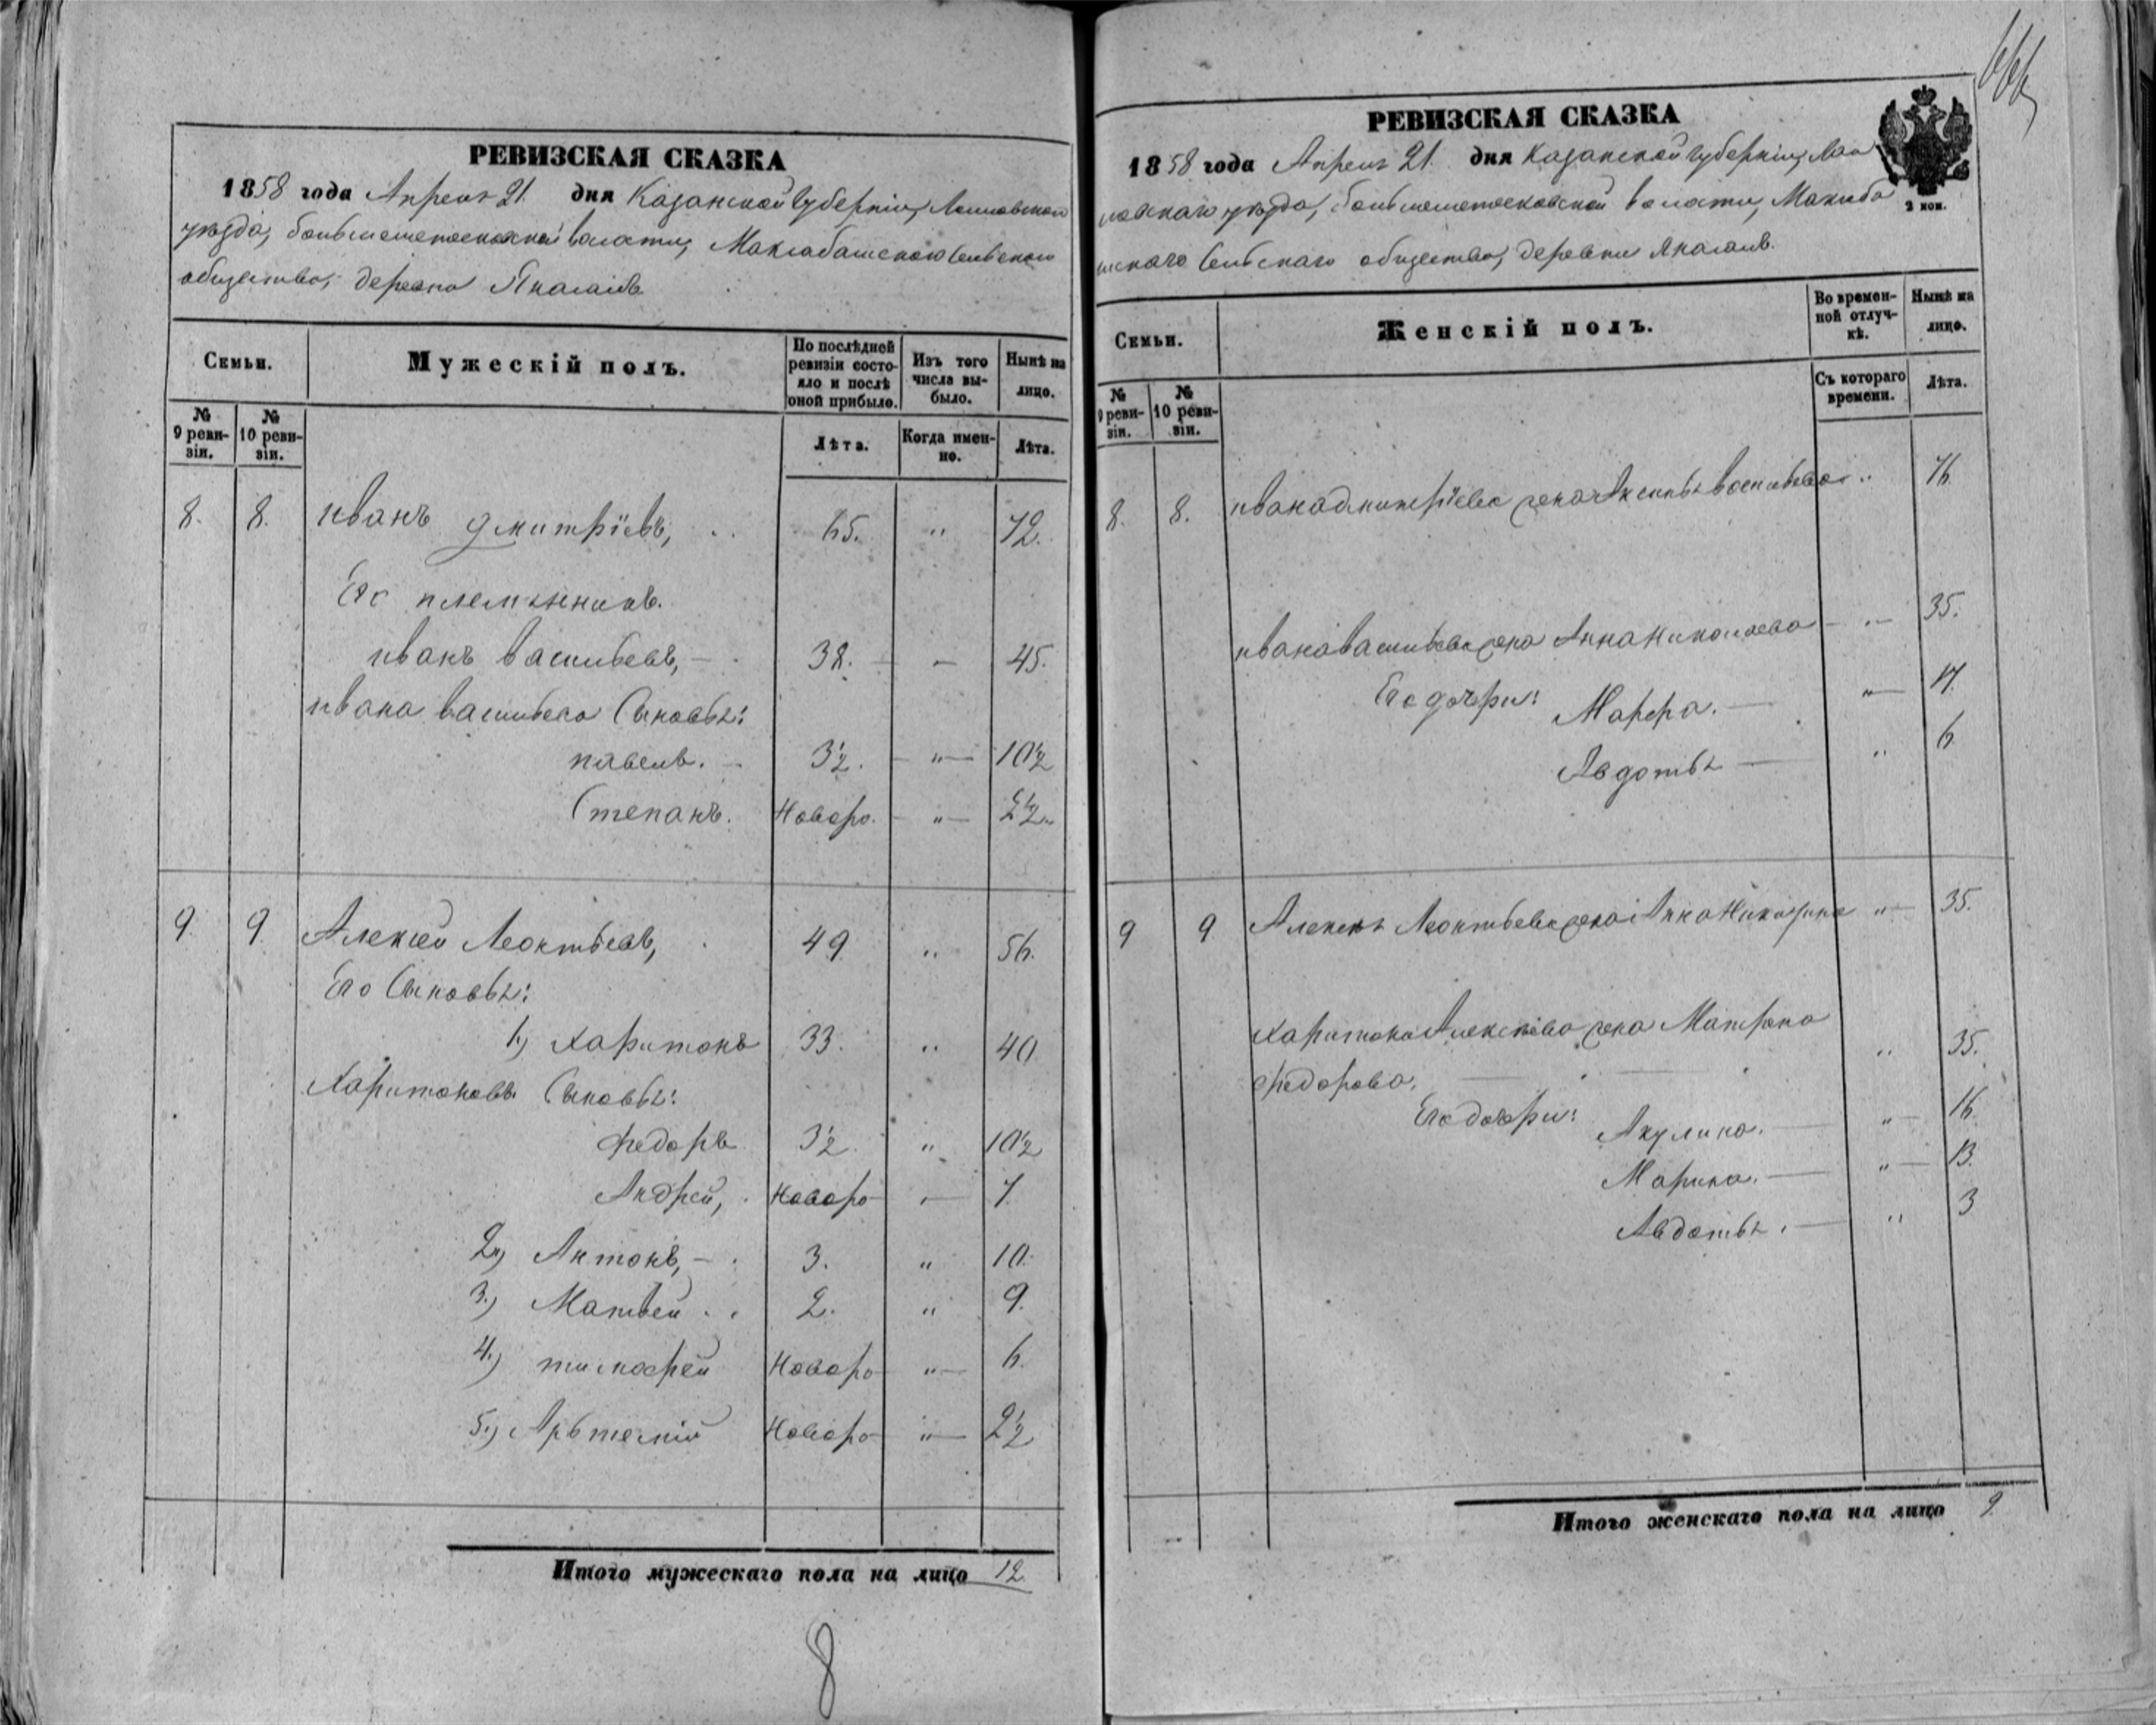 РЕВИЗСКАЯ СКАЗКА
1858 года Апреля 21. дня Казанской Губерніи, Лаишевскаго
уѣзда, волости, Сельскаго
общества, деревни
Семьи.
Мужескій полъ.
По послѣдней ревизіи состояло и послѣ оной прибыло.
Изъ того числа выбыло.
Нынѣ на лицо.
№ 9 ревизіи.
№ 10 ревизіи.
Лѣта.
Когда именно.
Лѣта.
8. 8. иванъ дмитріевъ, 65. " 72.
Его племянникъ.
иванъ васильевъ, 38. – 45.
ивана васильева Сыновья:
павелъ. 3½. " 10½
Степанъ. Новоро. "
9. 9. Алексей Леонтьевъ, 49 " 56.
Его Сыновья:
1.) Харитонъ 33. " 40
Харитоновы Сыновья:
Федоръ 3½ " 10½
Андрей, Новоро " 7.
2.) Антонъ, 3. " 10.
3.) Матвей 2. " 9.
4.) тимофей Новоро " 6.
5.) Новоро " 2½
Итого мужескаго пола на лицо 12.
8
РЕВИЗСКАЯ СКАЗКА
1858 года Апреля 21. дня Казанской Губерніи, Лаи
уѣзда, волости,
Сельскаго общества, деревни
2 коп.
Семьи.
Женскій полъ.
Во временной отлучкѣ.
Нынѣ на лицо.
№ 9 ревизіи.
№ 10 ревизіи.
Съ котораго времени.
Лѣта.
8. 8. ивана дмитріева жена Аксинья васильева " 76
ивана васильева жена Анна Николаева " 35.
Его дочери: Марфа. " 17.
Авдотья " 6
9 9 Алексея Леонтьева жена Анна " 35.
Харитона Алексеева жена Матрена
федорова. " 35.
Его дочери: Акулина. " 16.
Марина. " 13.
Авдотья. " 3
Итого женскаго пола на лицо 9.